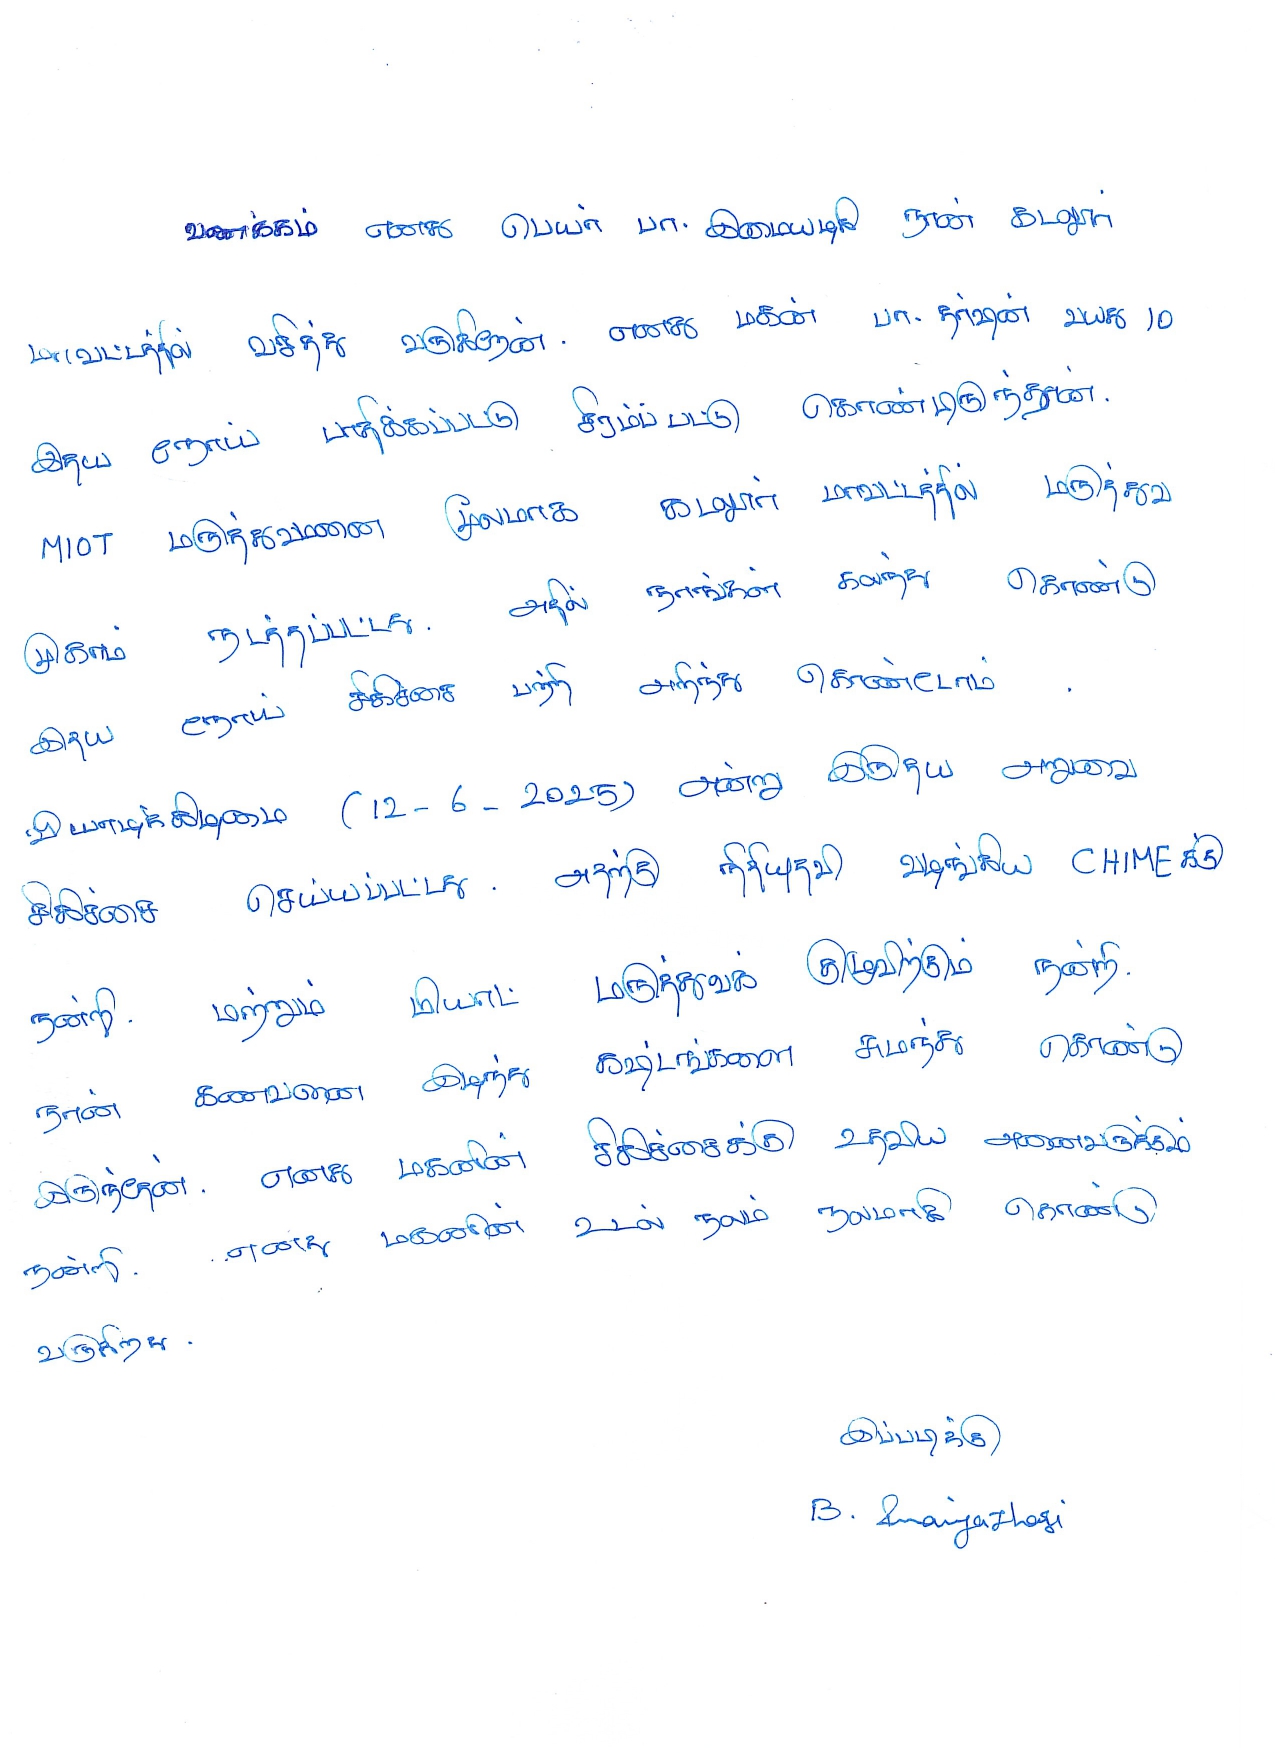 வணக்கம் எனது பெயர் பா. இமையழகி நான் கடலூர்
மாவட்டத்தில் வசித்து வருகிறேன். எனது மகன் பா. தர்ஷன் வயது 10
இதய நோய் பாதிக்கப்பட்டு சிரம்ப்பட்டு கொண்டிருந்தான்.
MIOT மருத்துவமனை மூலமாக கடலூர் மாவட்டத்தில் மருத்துவ
முகாம் நடத்தப்பட்டது. அதில் நாங்கள் கலந்து கொண்டு
இதய நோய் சிகிச்சை பற்றி அறிந்து கொண்டோம் .
வியாழக்கிழமை (12-6-2025) அன்று இருதய அறுவை
சிகிச்சை செய்யப்பட்டது. அதற்கு நிதியுதவி வழங்கிய CHIMEக்கு
நன்றி. மற்றும் மியாட் மருத்துவக் குழுவிற்கும் நன்றி.
நான் கணவனை இழந்து கஷ்டங்களை சுமந்து கொண்டு
இருந்தேன். எனது மகனின் சிகிச்சைக்கு உதவிய அனைவருக்கும்
நன்றி. எனது மகனின் உடல் நலம் நலமாகி கொண்டு
வருகிறது.
இப்படிக்கு
B. Imaiyazhagi